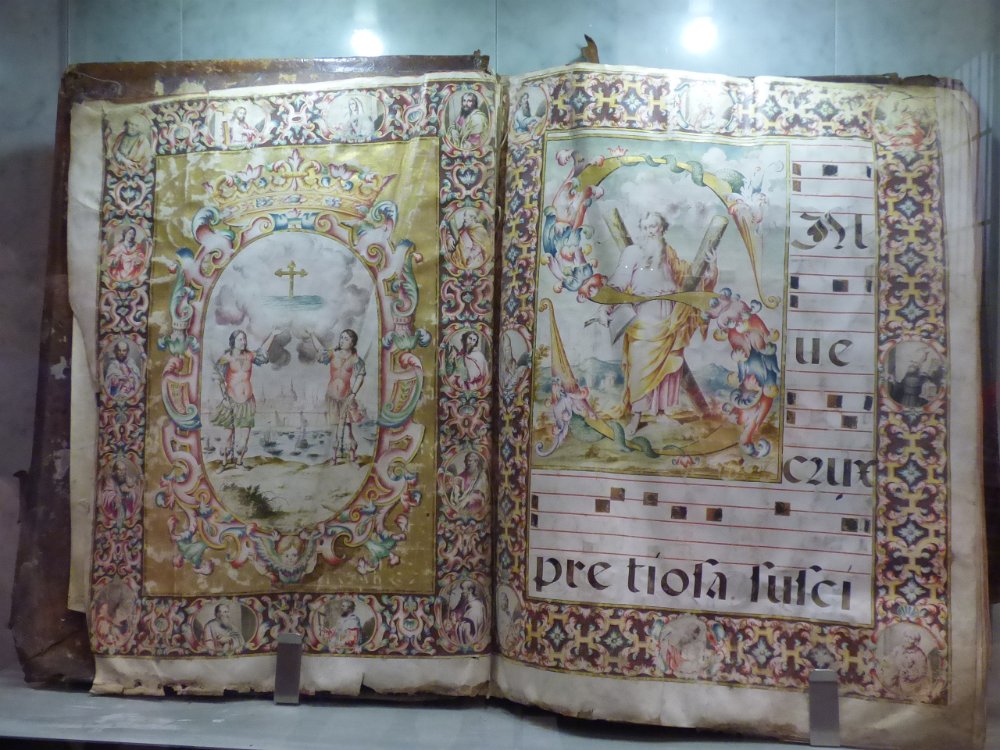 SAl
ue
crux
pre tioſa ſuſci